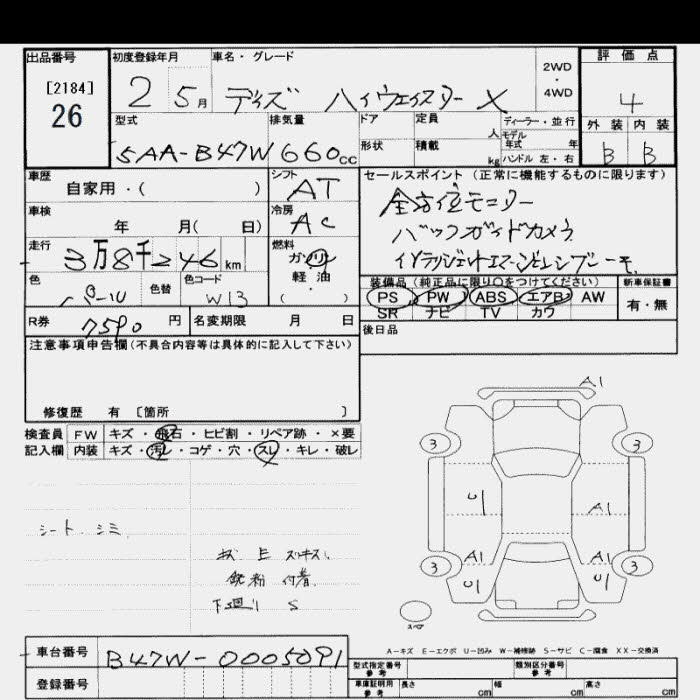 出品番号
[2184]
26
初度登録年月
2 5月
車名・グレード
デイズ ハイウェイスター X
2WD
・
4WD
評価点
4
外装 内装
B B
型式
5AA-B47W
排気量
660cc
ドア
定員
人
ディーラー・並行
モデル年式 年
形状
積載
kg
ハンドル 左・右
車歴
自家用・( )
シフト
AT
セールスポイント (正常に機能するものに限ります)
全方位モニター
バックガイドカメラ
車検
年 月( 日)
冷房
AC
走行
3万8千246km
燃料
ガソリン
軽油
・
( )
色
色替
色コード
W13
装備品 (純正品に限り○をつけてください)
PS PW ABS エアB AW
SR ナビ TV カワ
新車保証書
有・無
R券
7590円
名変期限 月 日
後日品
注意事項申告欄(不具合内容等は具体的に記入して下さい)
修復歴 有 [箇所 ]
検査員
記入欄
FW キズ・飛石・ヒビ割・リペア跡・×要
内装 キズ・汚レ・コゲ・穴・スレ・キレ・破レ
シート シミ
鉄粉 付着
下廻り S
A1
3 3
U1 A1
A1 A1
3 U1 U1 3
スペア
A-キズ E-エクボ U-凹み W-補修跡 S-サビ C-腐食 XX-交換済
車台番号
B47W-0005091
登録番号
型式指定番号
参考
類別区分番号
参考
車庫証明用
参考
長さ cm 幅 cm 高さ cm